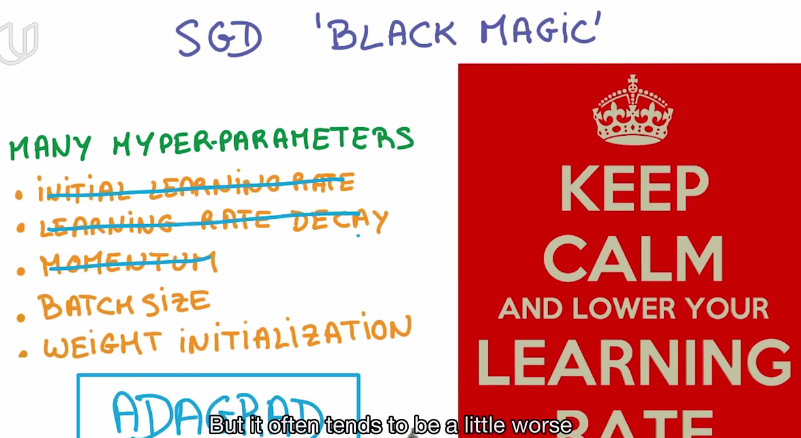 SGD 'BLACK MAGIC'
MANY HYPER-PARAMETERS
• INITIAL LEARNING RATE
• LEARNING RATE DECAY
• MOMENTUM
• BATCH SIZE
• WEIGHT INITIALIZATION
ADAGRAD
KEEP
CALM
AND LOWER YOUR
LEARNING
RATE
But it often tends to be a little worse